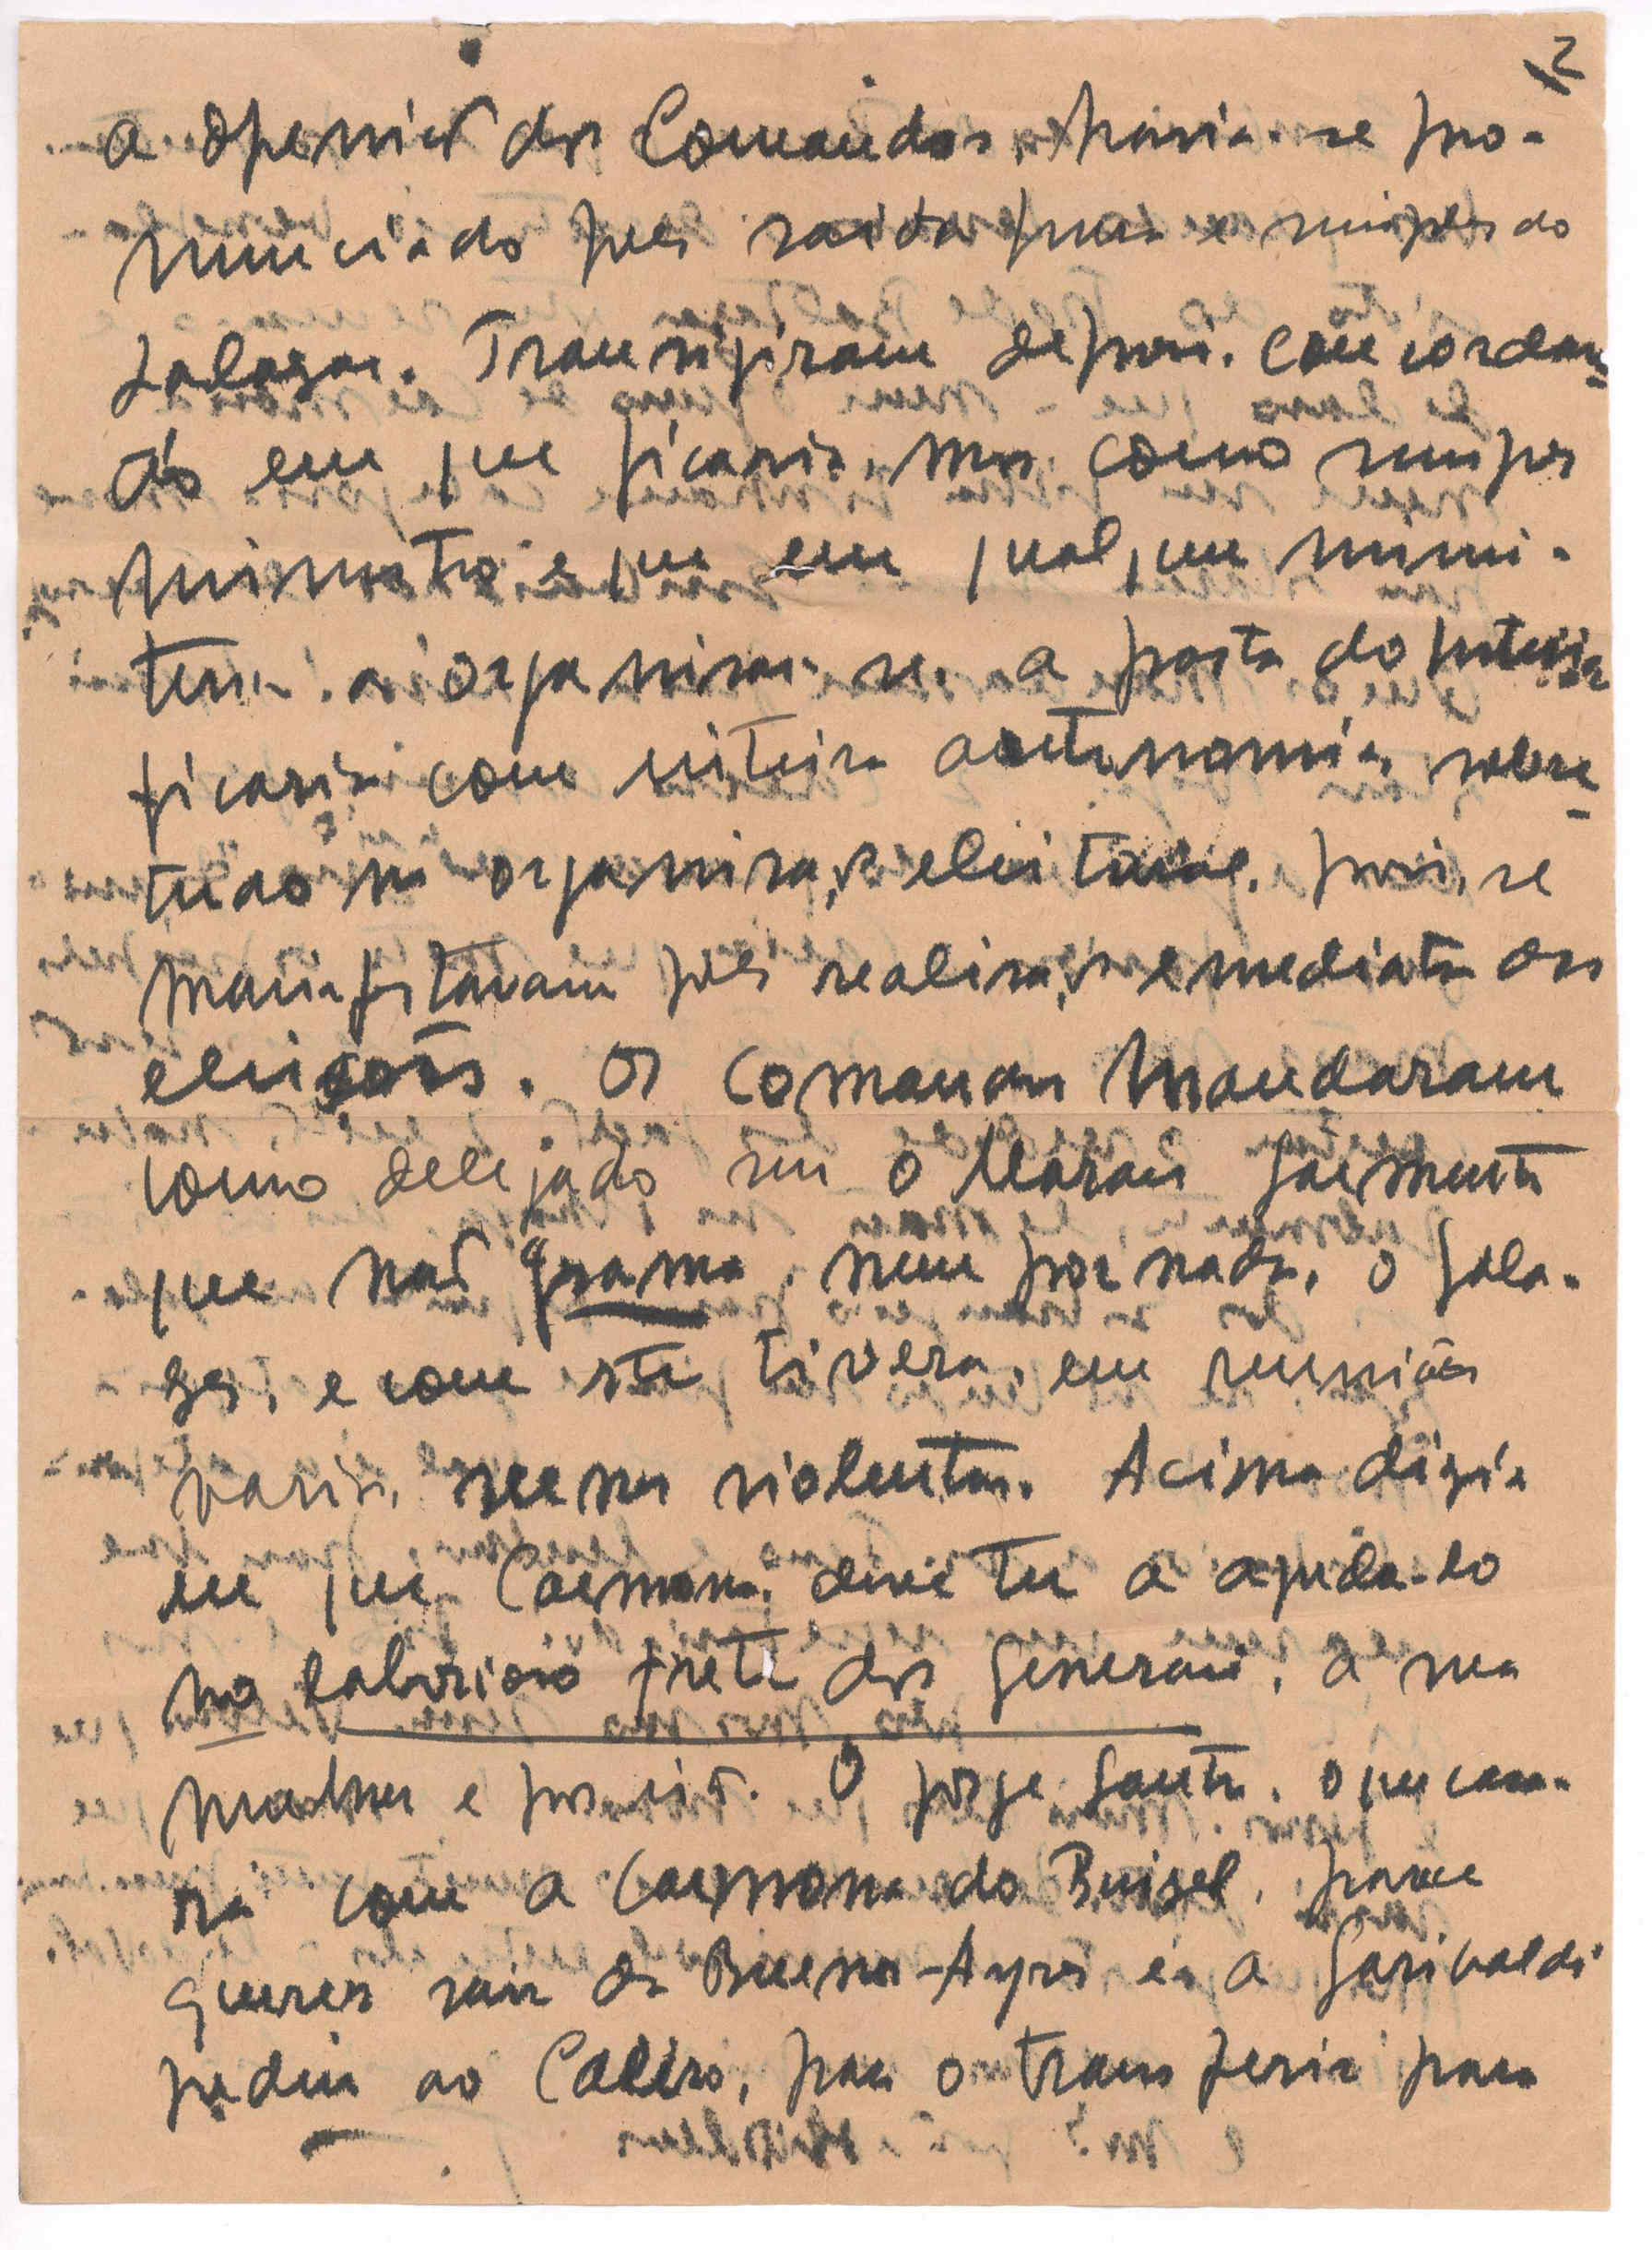 2
a opinião dos Comandos, havia-se pro-
nunciado pela saida pura e simples do
Salazar. Transigiram depois, concordan-
do em que ficaria, mas como simples
ministro e que em qualquer minis-
terio a organisar-se, a pasta do Interior
ficaria com inteira autonomia, sobre-
tudo na organisação eleitoral, pois, se
manifestavam pela realisação emediata das
eleiçoês. Os comandos mandaram
como delegado seu o Morais Sarmento
que não grama, nem por nada, o Sala-
zar, e com este tivera, em reuniões
varias, scenas violentas. Acima dizia
eu que Carmona, deve ter a ajuda-lo
no laborioso frete dos Generais, a sua
mulher e por isto. O Jorge Santos, o que casa-
ra com a Carmona do Buisel, para
querer sair de Buenos-Ayres e a Garibaldi
pediu ao Caeiro, para o transferir para